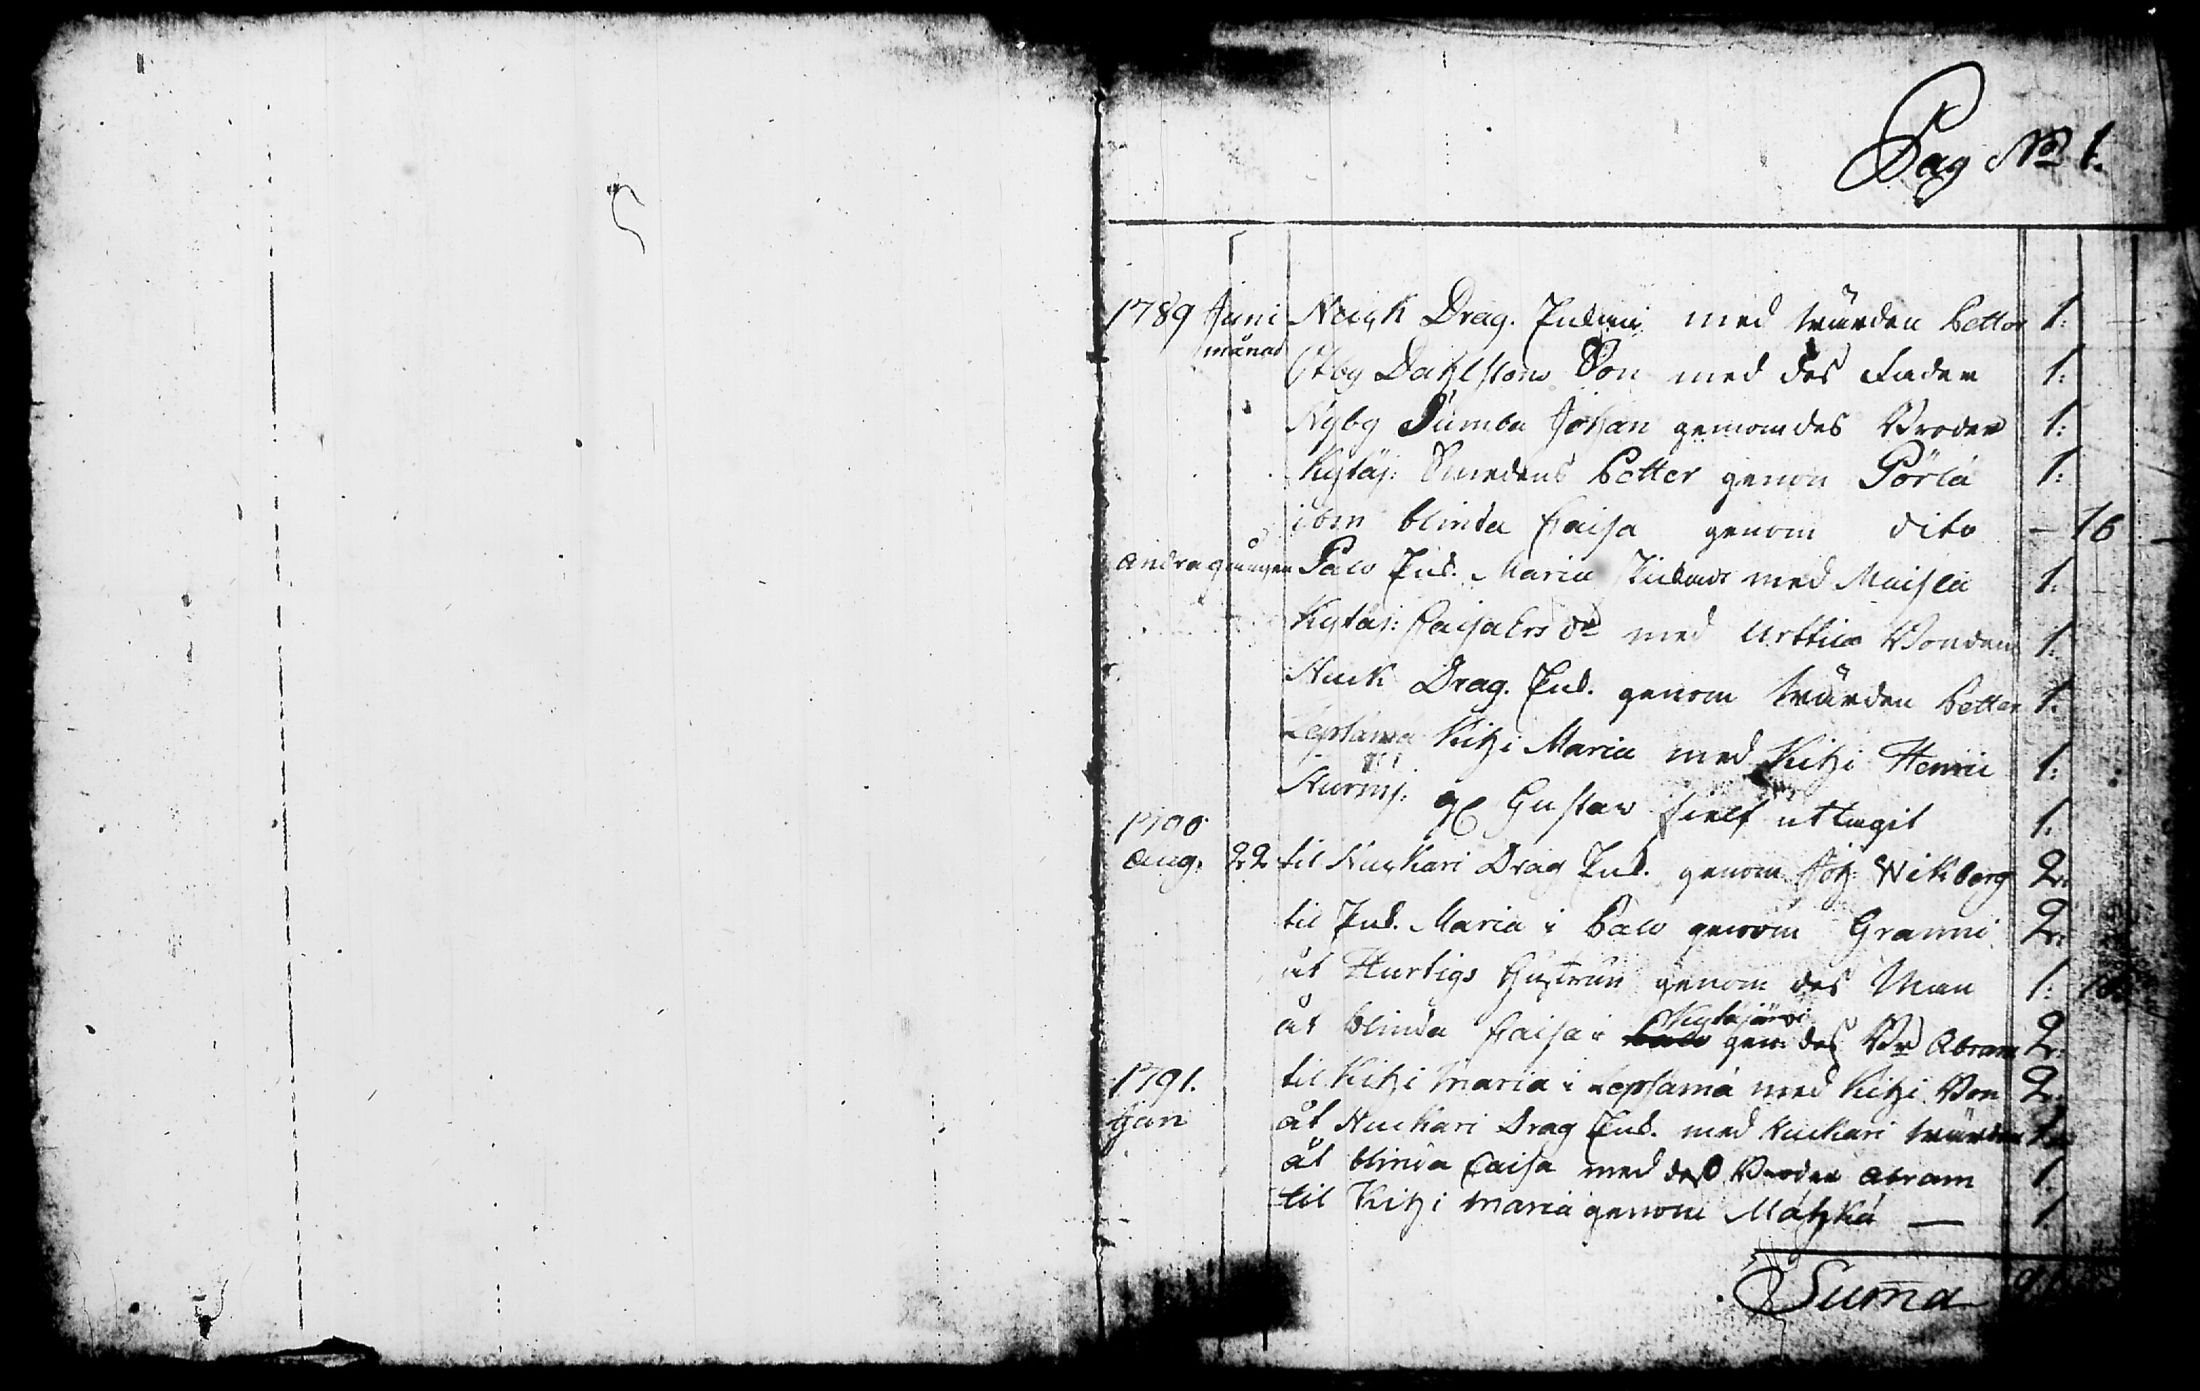 Pag No 1.
1789 Juni Nuck Drag. Enkan med wärden Petter 1:
månad
Åby Dahlstens Son med des Fader 1:
Nyby Sumba Johan genom des Broder 1:
Kytäj: Smedens Petter genom Pörlä 1:
ibm blinda Caisa genom dito — 16
andra gången Palo Enk. Maria med Maisla 1:
Kytäj: Caisa Ers dr med Urttila Bonden 1:
Nuck Drag. Enk. genom wärden Petter 1:
Lepsama Kitzi Maria med Kitzi Henric 1:
Nurmj: gl Gustav sielf uttagit 1:
1790
Aug. 22 til Nuckari Drag Enk. genom Joh: Wikberg 2:
til Enk. Maria i Palo genom Granni 2:
åt Hurtigs Hustrun genom des Man 1: 16
Kytäjärvi
åt blinda Caisa i gen: des Br Abram 2:
1791. til Kitzi Maria i Lepsama med Kitzi Bon 2:
Jan åt Nuckari Drag Enk. med Nuckari wärden 1:
åt blinda Caisa med dess Broder Abram 1:
til Kitzi Maria genom Mätzkä — 1:
Suma